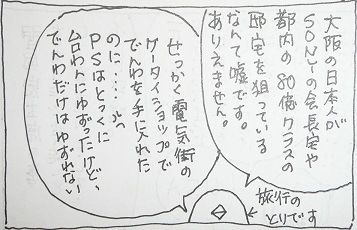 大阪の日本人が
SONYの会長宅や
都内の80億クラスの
邸宅を狙っている
なんて嘘です。
ありえません。
せっかく電気街の
ケータイショップで
でんわを手に入れた
のに‥‥
PSはとっくに
ムロわんにゆずったけど、
でんわだけはゆずれない
←旅行の
とりです